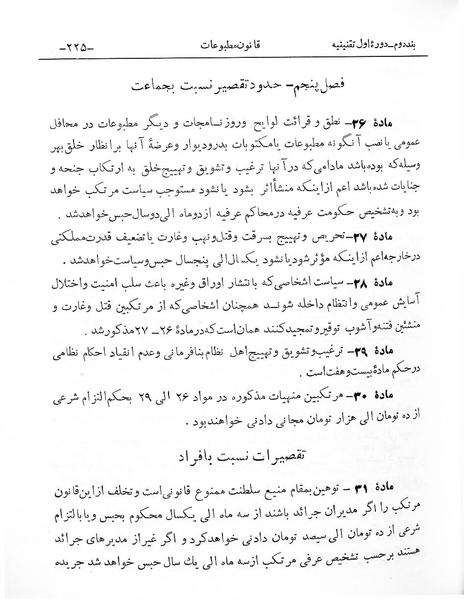 بند دوم ـ دورهٔ اول تقنینیه قانون مطبوعات ـ۲۲۵ـ
فصل پنجم ـ حدود تقصیر نسبت بجماعت
مادهٔ ۲۶ ـ نطق و قرائت لوایح و روزنامجات و دیگر مطبوعات در محافل
عمومی یا نصب آنگونه مطبوعات یا مکتوبات بدر و دیوار و عرضهٔ آنها بر انظار خلق بهر
وسیله که بوده باشد مادامی که در آنها ترغیب و تشویق و تهییج خلق به ارتکاب جنحه و
جنایات شده باشد اعم از اینکه منشأ اثر بشود یا نشود مستوجب سیاست مرتکب خواهد
بود و به تشخیص حکومت عرفیه در محاکم عرفیه از دو ماه الی دو سال حبس خواهد شد .
مادهٔ ۲۷ ـ تحریص و تهییج بسرقت و قتل و نهب و غارت یا تضعیف قدرت مملکتی
در خارجه اعم از اینکه مؤثر شود یا نشود یکسال الی پنجسال حبس و سیاست خواهد شد .
مادهٔ ۲۸ ـ سیاست اشخاصی که با انتشار اوراق و غیره باعث سلب امنیت و اختلال
آسایش عمومی و انتظام داخله شوند همچنان اشخاصی که از مرتکبین قتل و غارت و
منشئین فتنه و آشوب توقیر و تمجید کنند همان است که در مادهٔ ۲۶ ـ ۲۷ مذکور شد .
مادهٔ ۲۹ ـ ترغیب و تشویق و تهییج اهل نظام بنافرمانی و عدم انقیاد احکام نظامی
در حکم مادهٔ بیست و هفت است .
مادهٔ ۳۰ ـ مرتکبین منهیات مذکوره در مواد ۲۶ الی ۲۹ بحکم التزام شرعی
از ده تومان الی هزار تومان مجانی دادنی خواهند بود .
تقصیرات نسبت بافراد
مادهٔ ۳۱ ـ توهین بمقام منیع سلطنت ممنوع قانونی است و تخلف از این قانون
مرتکب را اگر مدیران جرائد باشند از سه ماه الی یکسال محکوم بحبس و یا بالتزام
شرعی از ده تومان الی سیصد تومان دادنی خواهد کرد و اگر غیر از مدیرهای جرائد
هستند بر حسب تشخیص عرفی مرتکب از سه ماه الی یک سال حبس خواهد شد جریده